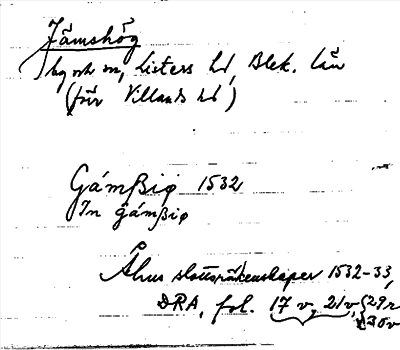 Jämshög
by och sn, Listers hd, Blek. län
(förr Villands hd)
Gámßiø 1532
In gámßiø
Åhus slottsräkenskaper 1532-33,
DRA, fol. 17 v, 21 v, 29 r
30 v